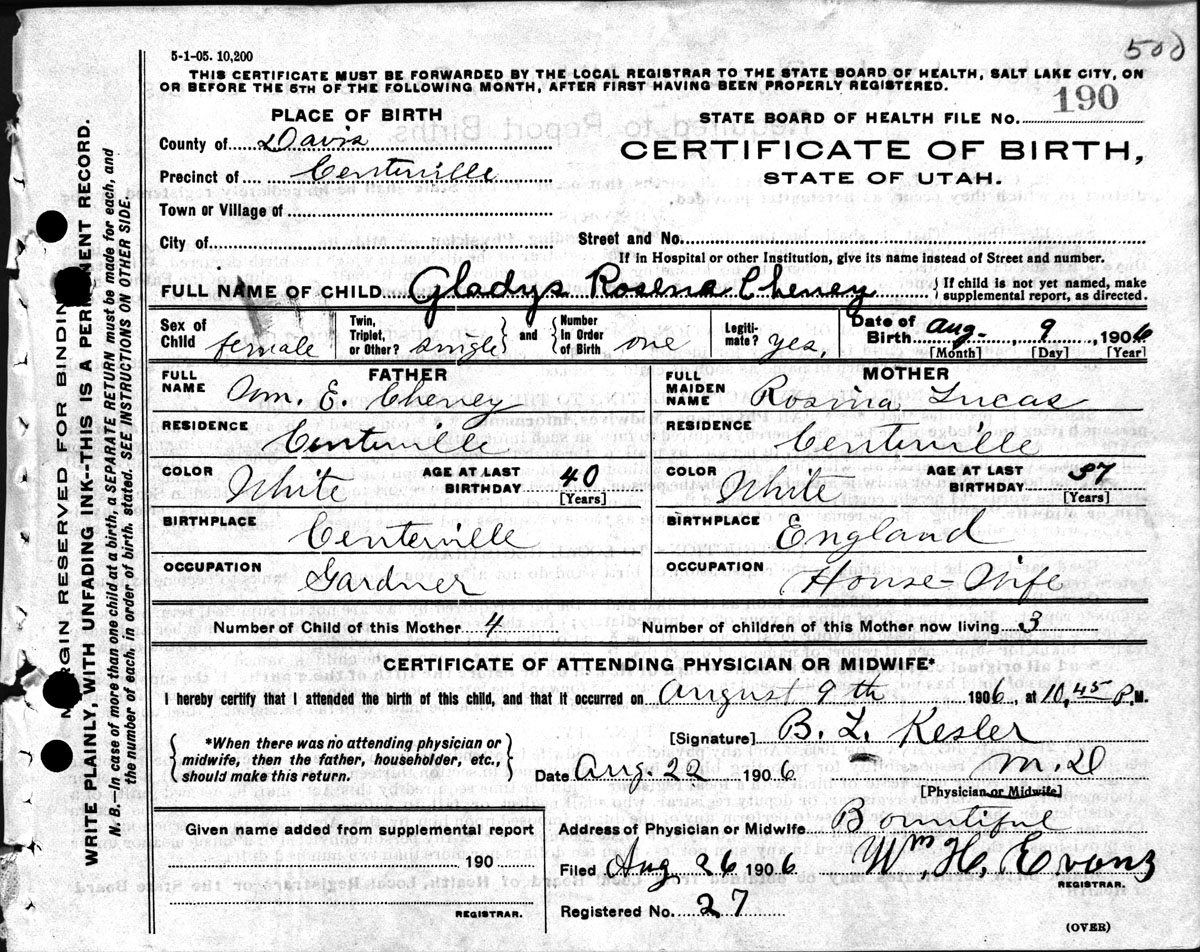 500
5-1-05. 10,200
THIS CERTIFICATE MUST BE FORWARDED BY THE LOCAL REGISTRAR TO THE STATE BOARD OF HEALTH, SALT LAKE CITY, ON
OR BEFORE THE 5TH OF THE FOLLOWING MONTH, AFTER FIRST HAVING BEEN PROPERLY REGISTERED.
190
PLACE OF BIRTH
STATE BOARD OF HEALTH FILE No.
County of Davis
CERTIFICATE OF BIRTH,
Precinct of Centerville
STATE OF UTAH.
Town or Village of
City of
Street and No.
If in Hospital or other Institution, give its name instead of Street and number.
FULL NAME OF CHILD Gladys Rosena Cheney { If child is not yet named, make supplemental report, as directed.
Sex of Child female Twin, Triplet, or Other? single and Number In Order of Birth one Legiti-mate? yes, Date of Birth Aug. 9, 1906
[Month] [Day] [Year]
FATHER
MOTHER
FULL NAME Wm. E. Cheney
FULL MAIDEN NAME Rosina Lucas
RESIDENCE Centerville
RESIDENCE Centerville
COLOR White AGE AT LAST BIRTHDAY 40 [Years]
COLOR White AGE AT LAST BIRTHDAY 37 [Years]
BIRTHPLACE Centerville
BIRTHPLACE England
OCCUPATION Gardner
OCCUPATION House-Wife
Number of Child of this Mother 4 Number of children of this Mother now living 3
CERTIFICATE OF ATTENDING PHYSICIAN OR MIDWIFE*
I hereby certify that I attended the birth of this child, and that it occurred on August 9th 1906, at 10,45 P.M.
{ *When there was no attending physician or midwife, then the father, householder, etc., should make this return. }
[Signature] B. L. Kesler
Date Aug. 22 1906 M.D
[Physician or Midwife]
Given name added from supplemental report
190
REGISTRAR.
Address of Physician or Midwife Bountiful
Filed Aug 26 1906 Wm H. Evans
REGISTRAR.
Registered No. 27
(OVER)
MARGIN RESERVED FOR BINDING
WRITE PLAINLY, WITH UNFADING INK--THIS IS A PERMANENT RECORD.
N. B.—In case of more than one child at a birth, a SEPARATE RETURN must be made for each, and
the number of each, in order of birth, stated. SEE INSTRUCTIONS ON OTHER SIDE.